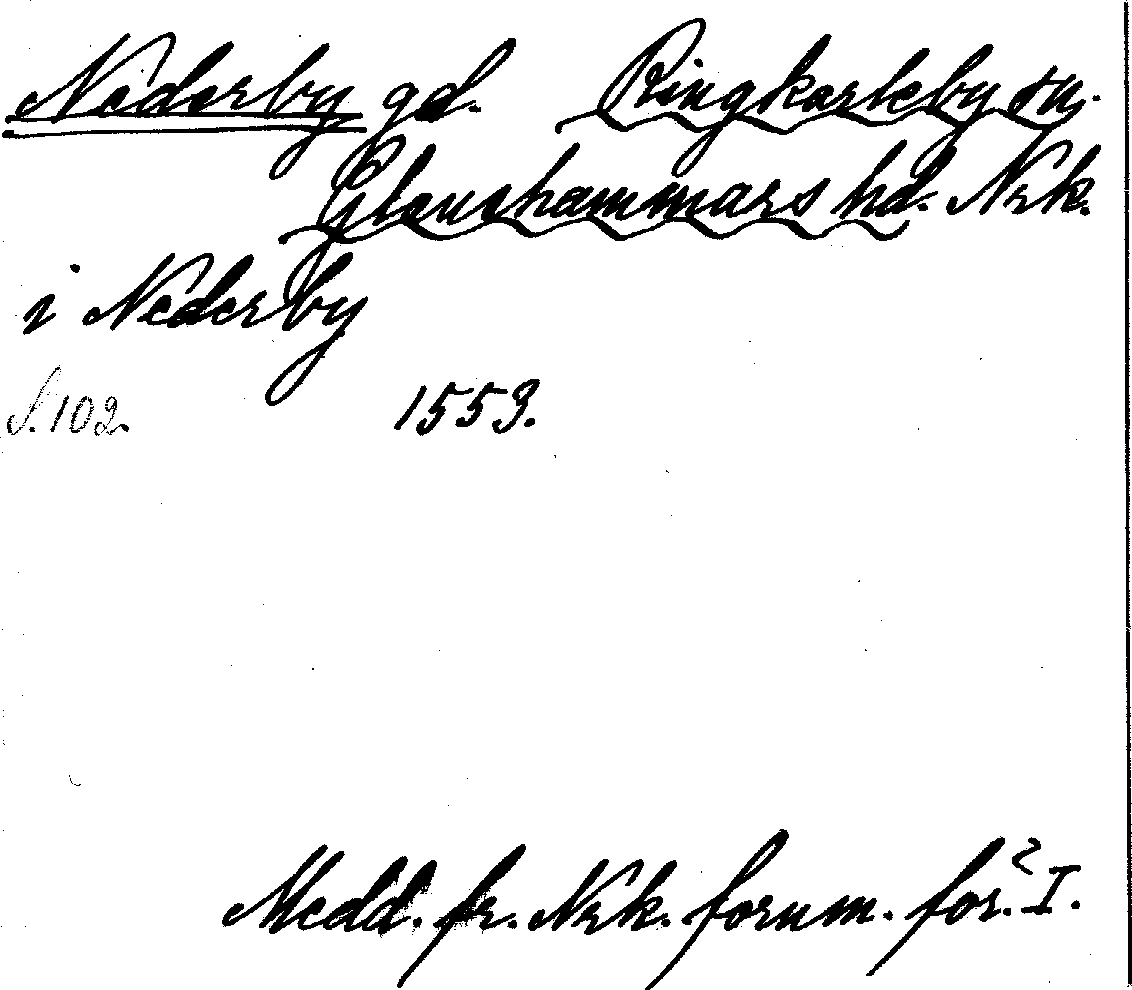 Nederby gd. Ringkarleby sn.
Glanshammars hd. Nrk.
i Nederby
S. 102. 1553.
Medd. fr. Nrk. fornm. för. I.